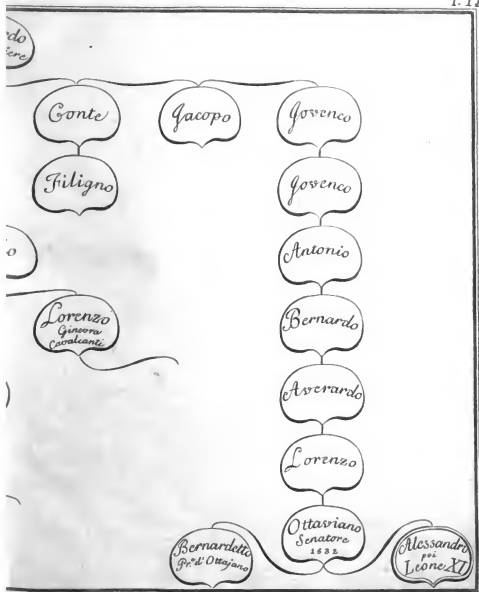 rdo
iere
Conte
Jacopo
Jovenco
Filigno
Jovenco
Antonio
Lorenzo
Ginevra
Cavalcanti
Bernardo
Averardo
Lorenzo
Ottaviano
Senatore
1632
Bernardetto
Pr.e d'Ottajano
Alessandro
poi
Leone XI